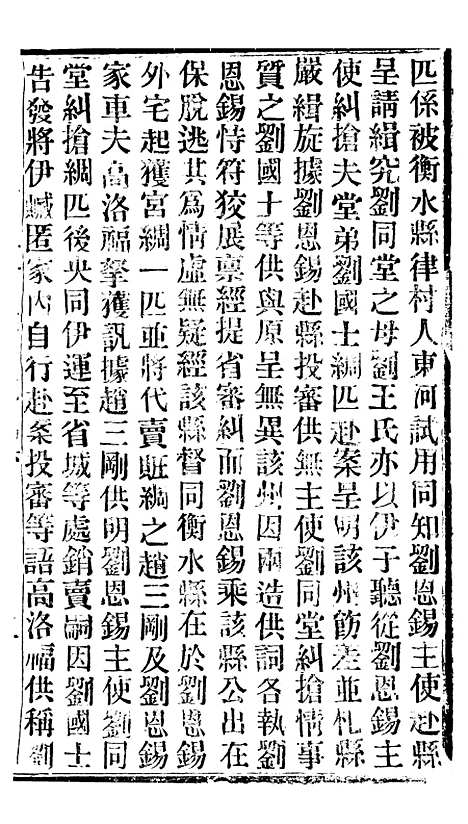 匹係被衡水縣律村人東河試用同知劉恩錫主使赴縣
呈請緝究劉同堂之母劉王氏亦以伊子聽從劉恩錫主
使糾搶夫堂弟劉國士綢匹赴案呈明該州飭差並札縣
嚴緝旋據劉恩錫赴縣投審供無主使劉同堂糾搶情事
質之劉國士等供與原呈無異該州因兩造供詞各執劉
恩錫恃符狡展稟經提省審糾而劉恩錫乘該縣公出在
保脫逃其為情虛無疑經該縣督同衡水縣在於劉恩錫
外宅起獲宮綢一匹並將代賣賍綢之趙三剛及劉恩錫
家車夫高洛福拏獲訊據趙三剛供明劉恩錫主使劉同
堂糾搶綢匹後央同伊運至省城等處銷賣嗣因劉國士
告發將伊藏匿家內自行赴案投審等語高洛福供稱劉